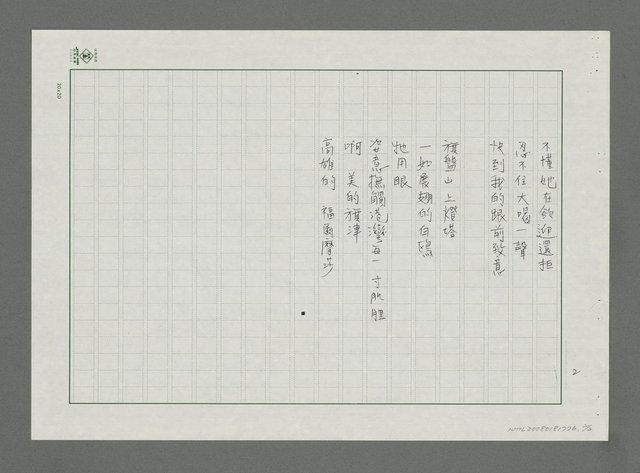 不懂她在欲迎還拒
忍不住大喝一聲
快到我的跟前致意
旗盤山上燈塔
一如展翅的白鴎
牠用眼
恣意撫觸港灣每一寸肌膛
啊 美的旗津
高雄的 福爾摩莎
2
20x20